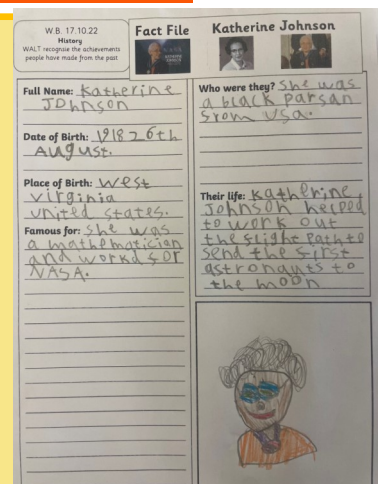 W.B. 17.10.22
History
WALT recognise the achievements
people have made from the past
Fact File
Katherine Johnson
Full Name: Katherine
Johnson
Date of Birth: 1918 26th
August.
Place of Birth: West
virginia
united states.
Famous for: She was
a mathematician
and workd for
NASA.
Who were they? She was
a black parsan
from USA.
Their life: Katherine
Johnson helped
to work out
the flight path to
send the first
astronauts to
the moon